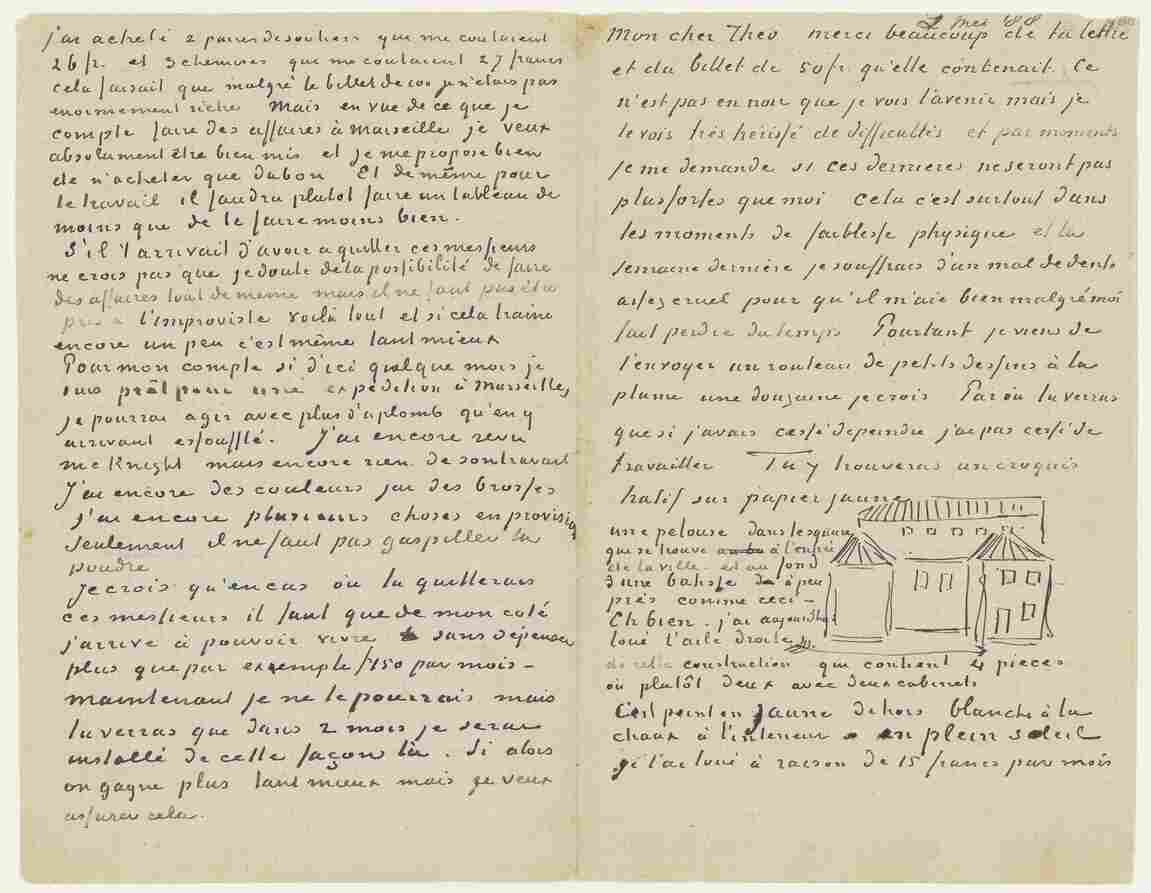 j'ai acheté 2 paires de souliers qui me coutaient
26 fr. et 3 chemises qui me coutaient 27 francs
cela faisait que malgré le billet de 100 je n'étais pas
enormement riche Mais en vue de ce que je
compte faire des affaires à Marseille je veux
absolument être bien mis et je me propose bien
de n'acheter que du bon Et de même pour
le travail il faudra plutot faire un tableau de
moins que de le faire moins bien.
S'il t'arrivait d'avoir a quitter ces messieurs
ne crois pas que je doute de la possibilité de faire
des affaires tout de meme mais il ne faut pas être
pris à l'improviste voilà tout et si cela traine
encore un peu c'est même tant mieux
Pour mon compte si d'ici quelque mois je
suis prêt pour une expédition à Marseille,
je pourrai agir avec plus d'aplomb qu'en y
arrivant essoufflé. J'ai encore revu
McKnight mais encore rien de son travail
J'ai encore des couleurs j'ai des brosses
j'ai encore plusieurs choses en provision
Seulement il ne faut pas gaspiller la
poudre
Je crois qu'en cas où tu quitterais
ces messieurs il faut que de mon coté
j'arrive à pouvoir vivre sans dépenser
plus que par exemple fr 150 par mois –
maintenant je ne le pourrais mais
tu verras que dans 2 mois je serai
installé de cette façon là. Si alors
on gagne plus tant mieux mais je veux
assurer cela.
2 Mei 88
Mon cher Theo merci beaucoup de ta lettre
et du billet de 50 fr. qu'elle contenait. Ce
n'est pas en noir que je vois l'avenir mais je
le vois très hérissé de difficultés et par moments
je me demande si ces dernieres ne seront pas
plus fortes que moi Cela c'est surtout dans
les moments de faiblesse physique et la
semaine dernière je souffrais d'un mal de dents
assez cruel pour qu'il m'aie bien malgré moi
fait perdre du temps Pourtant je viens de
t'envoyer un rouleau de petits dessins à la
plume une douzaine je crois Par où tu verras
que si j'avais cessé de peindre j'ai pas cessé de
travailler Tu y trouveras un croquis
hatif sur papier jaune
une pelouse dans le square
qui se trouve à l'entrée
de la ville. et au fond
d'une batisse à peu
près comme ceci –
Eh bien – j'ai aujourd'hui
loué l'aile droite
de cette construction qui contient 4 pieces
ou plutôt deux avec deux cabinets
C'est peint en jaune dehors blanchi à la
chaux à l'intérieur en plein soleil
je l'ai loué à raison de 15 francs par mois